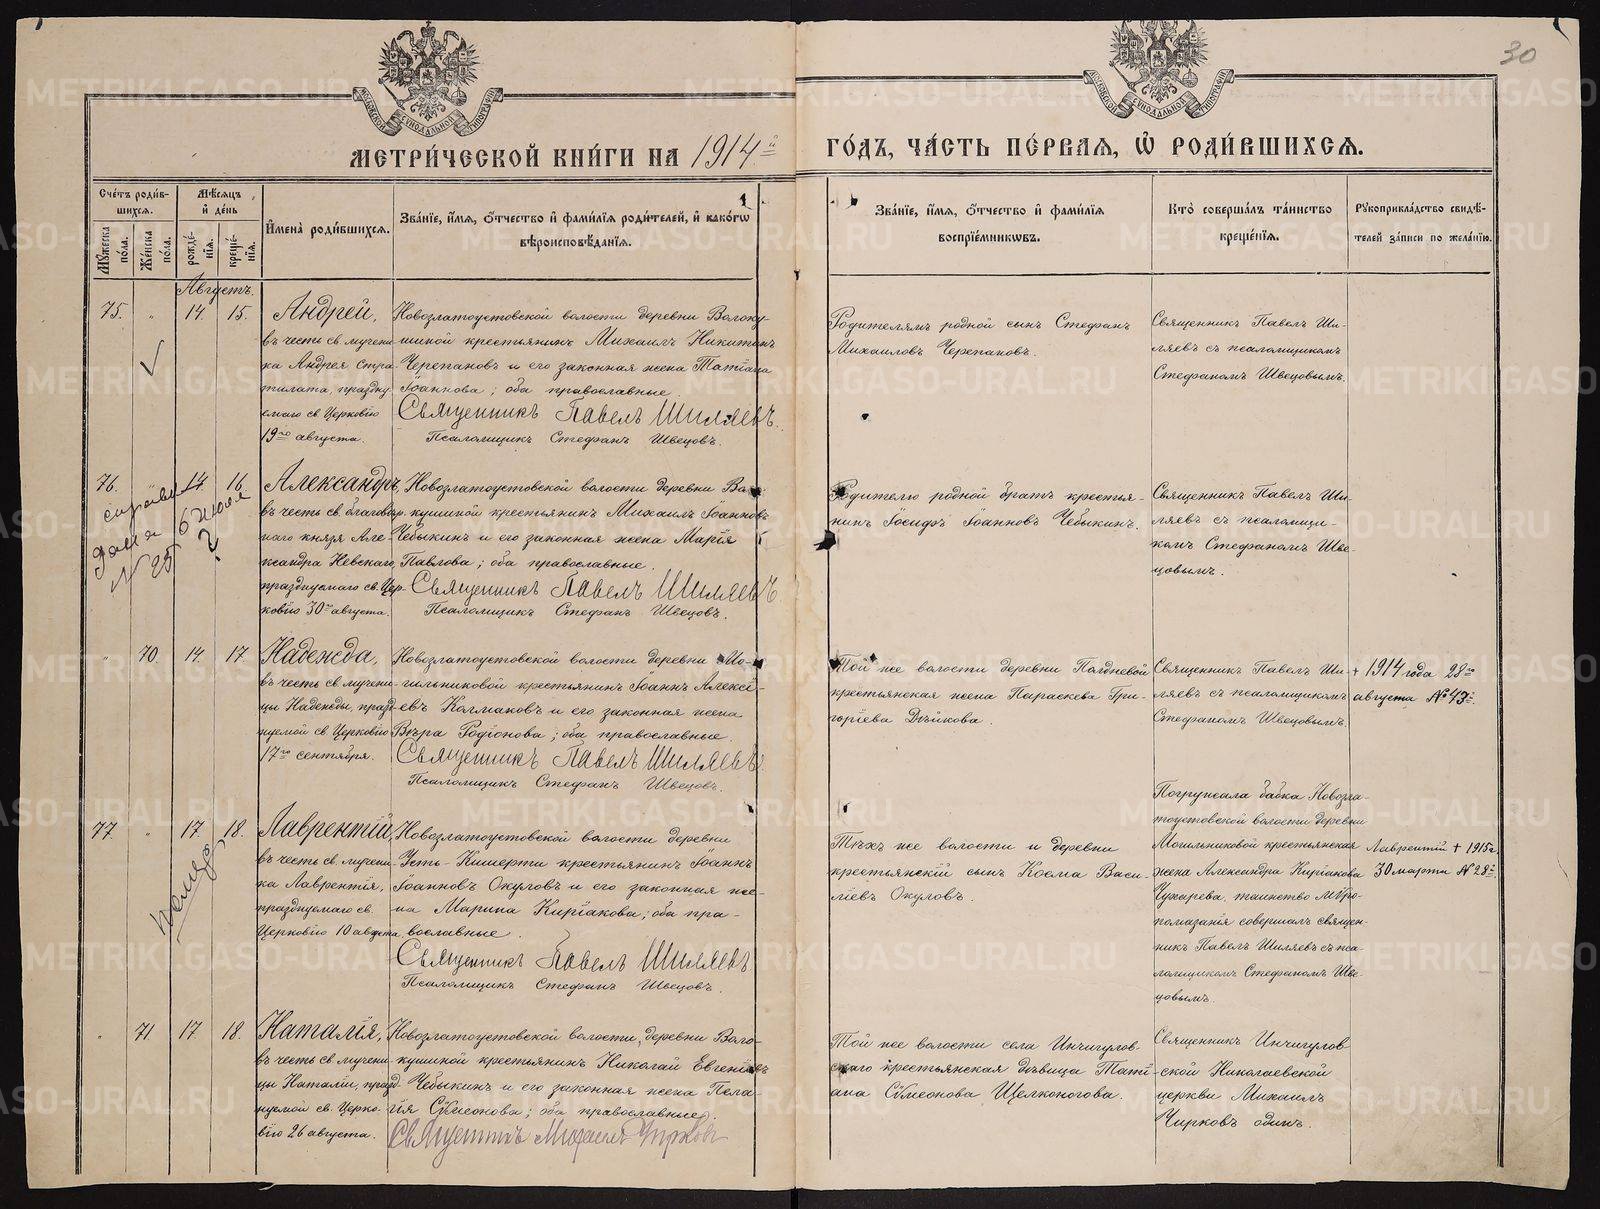 30
МЕТРИ́ЧЕСКОЙ КНИ́ГИ НА 1914й
ГО́ДЪ, ЧА́СТЬ ПЕ́РВАЯ, Ѡ҆ РОДИ́ВШИХСЯ.
Сче́тъ роди́в-
шихся.
Мѣ́сяцъ
и҆ де́нь
Мꙋ́жеска по́ла.
Же́нска по́ла.
рожде́-
нїя.
креще́-
нїя.
И҆мена̀ роди́вшихся.
Зва́нїе, и҆́мя, ѻ҆́тчество и҆ фами́лїя роди́телей, и҆ како́гѡ
вѣроисповѣ́данїя.
Зва́нїе, и҆́мя, ѻ҆́тчество и҆ фами́лїя
воспрїе́мникѡвъ.
Кто̀ соверша́лъ та́инство
креще́нїя.
Рꙋкоприкла́дство свидѣ́-
телей за́писи по жела́нїю.
Августъ.
75.
"
14.
15.
Андрей,
въ честь св. мучени-
ка Андрея Стра-
тилата, праздну-
емаго св. Церковію
19го августа.
Новозлатоустовской волости деревни Волоку-
шиной крестьянинъ Михаилъ Никитинъ
Черепановъ и его законная жена Татіана
Іоаннова; оба православные
Священникъ Павелъ Шиляевъ.
Псаломщикъ Стефанъ Швецовъ.
Родителямъ родной сынъ Стефанъ
Михаиловъ Черепановъ.
Священникъ Павелъ Ши-
ляевъ съ псаломщикомъ
Стефаномъ Швецовымъ.
76.
"
14.
16.
справка
дана 6 июля
№ 25
Александръ,
въ честь св. благовѣр-
наго князя Але-
ксандра Невскаго,
празднуемаго св. Цер-
ковію 30го августа.
Новозлатоустовской волости деревни Воло-
кушиной крестьянинъ Михаилъ Іоанновъ
Чебыкинъ и его законная жена Марія
Павлова; оба православные.
Священникъ Павелъ Шиляевъ
Псаломщикъ Стефанъ Швецовъ.
Родителю родной братъ крестья-
нинъ Іосифъ Іоанновъ Чебыкинъ.
Священникъ Павелъ Ши-
ляевъ съ псаломщи-
комъ Стефаномъ Шве-
цовымъ.
"
70.
14.
17.
Надежда,
въ честь св. мучени-
цы Надежды, празд-
нуемой св. Церковію
17го сентября.
Новозлатоустовской волости деревни Мо-
гильниковой крестьянинъ Іоаннъ Алексі-
евъ Колмаковъ и его законная жена
Вѣра Родіонова; оба православные.
Священникъ Павелъ Шиляевъ.
Псаломщикъ Стефанъ Швецовъ.
Той же волости деревни Полдневой
крестьянская жена Параскева Гри-
горіева Дѣйкова.
Священникъ Павелъ Ши-
ляевъ съ псаломщикомъ
Стефаномъ Швецовымъ.
+ 1914 года 28го
августа № 43й.
77.
"
17.
18.
Лаврентій,
въ честь св. мучени-
ка Лаврентія,
празднуемаго св.
Церковію 10 августа.
Новозлатоустовской волости деревни
Усть-Кишерти крестьянинъ Іоаннъ
Іоанновъ Окуловъ и его законная же-
на Марина Киріакова; оба пра-
вославные.
Священникъ Павелъ Шиляевъ
Псаломщикъ Стефанъ Швецовъ.
Тѣхъ же волости и деревни
крестьянскій сынъ Косма Васи-
ліевъ Окуловъ.
Погружала бабка Новозла-
тоустовской волости деревни
Могильниковой крестьянская
жена Александра Киріакова
Чухарева, таинство мѵро-
помазанія совершалъ священ-
никъ Павелъ Шиляевъ съ пса-
ломщикомъ Стефаномъ Шве-
цовымъ.
Лаврентій + 1915 г.
30 марта № 28й.
"
71.
17.
18.
Наталія,
въ честь св. мучени-
цы Наталіи, празд-
нуемой св. Церко-
вію 26 августа.
Новозлатоустовской волости, деревни Воло-
кушиной крестьянинъ Николай Евгеніевъ
Чебыкинъ и его законная жена Пела-
гія Сѵмеонова; оба православные.
Священникъ Михаилъ Чирковъ
Той же волости села Инчигулов-
скаго крестьянская дѣвица Таті-
ана Сѵмеонова Щелконогова.
Священникъ Инчигулов-
ской Николаевской
церкви Михаилъ
Чирковъ одинъ.